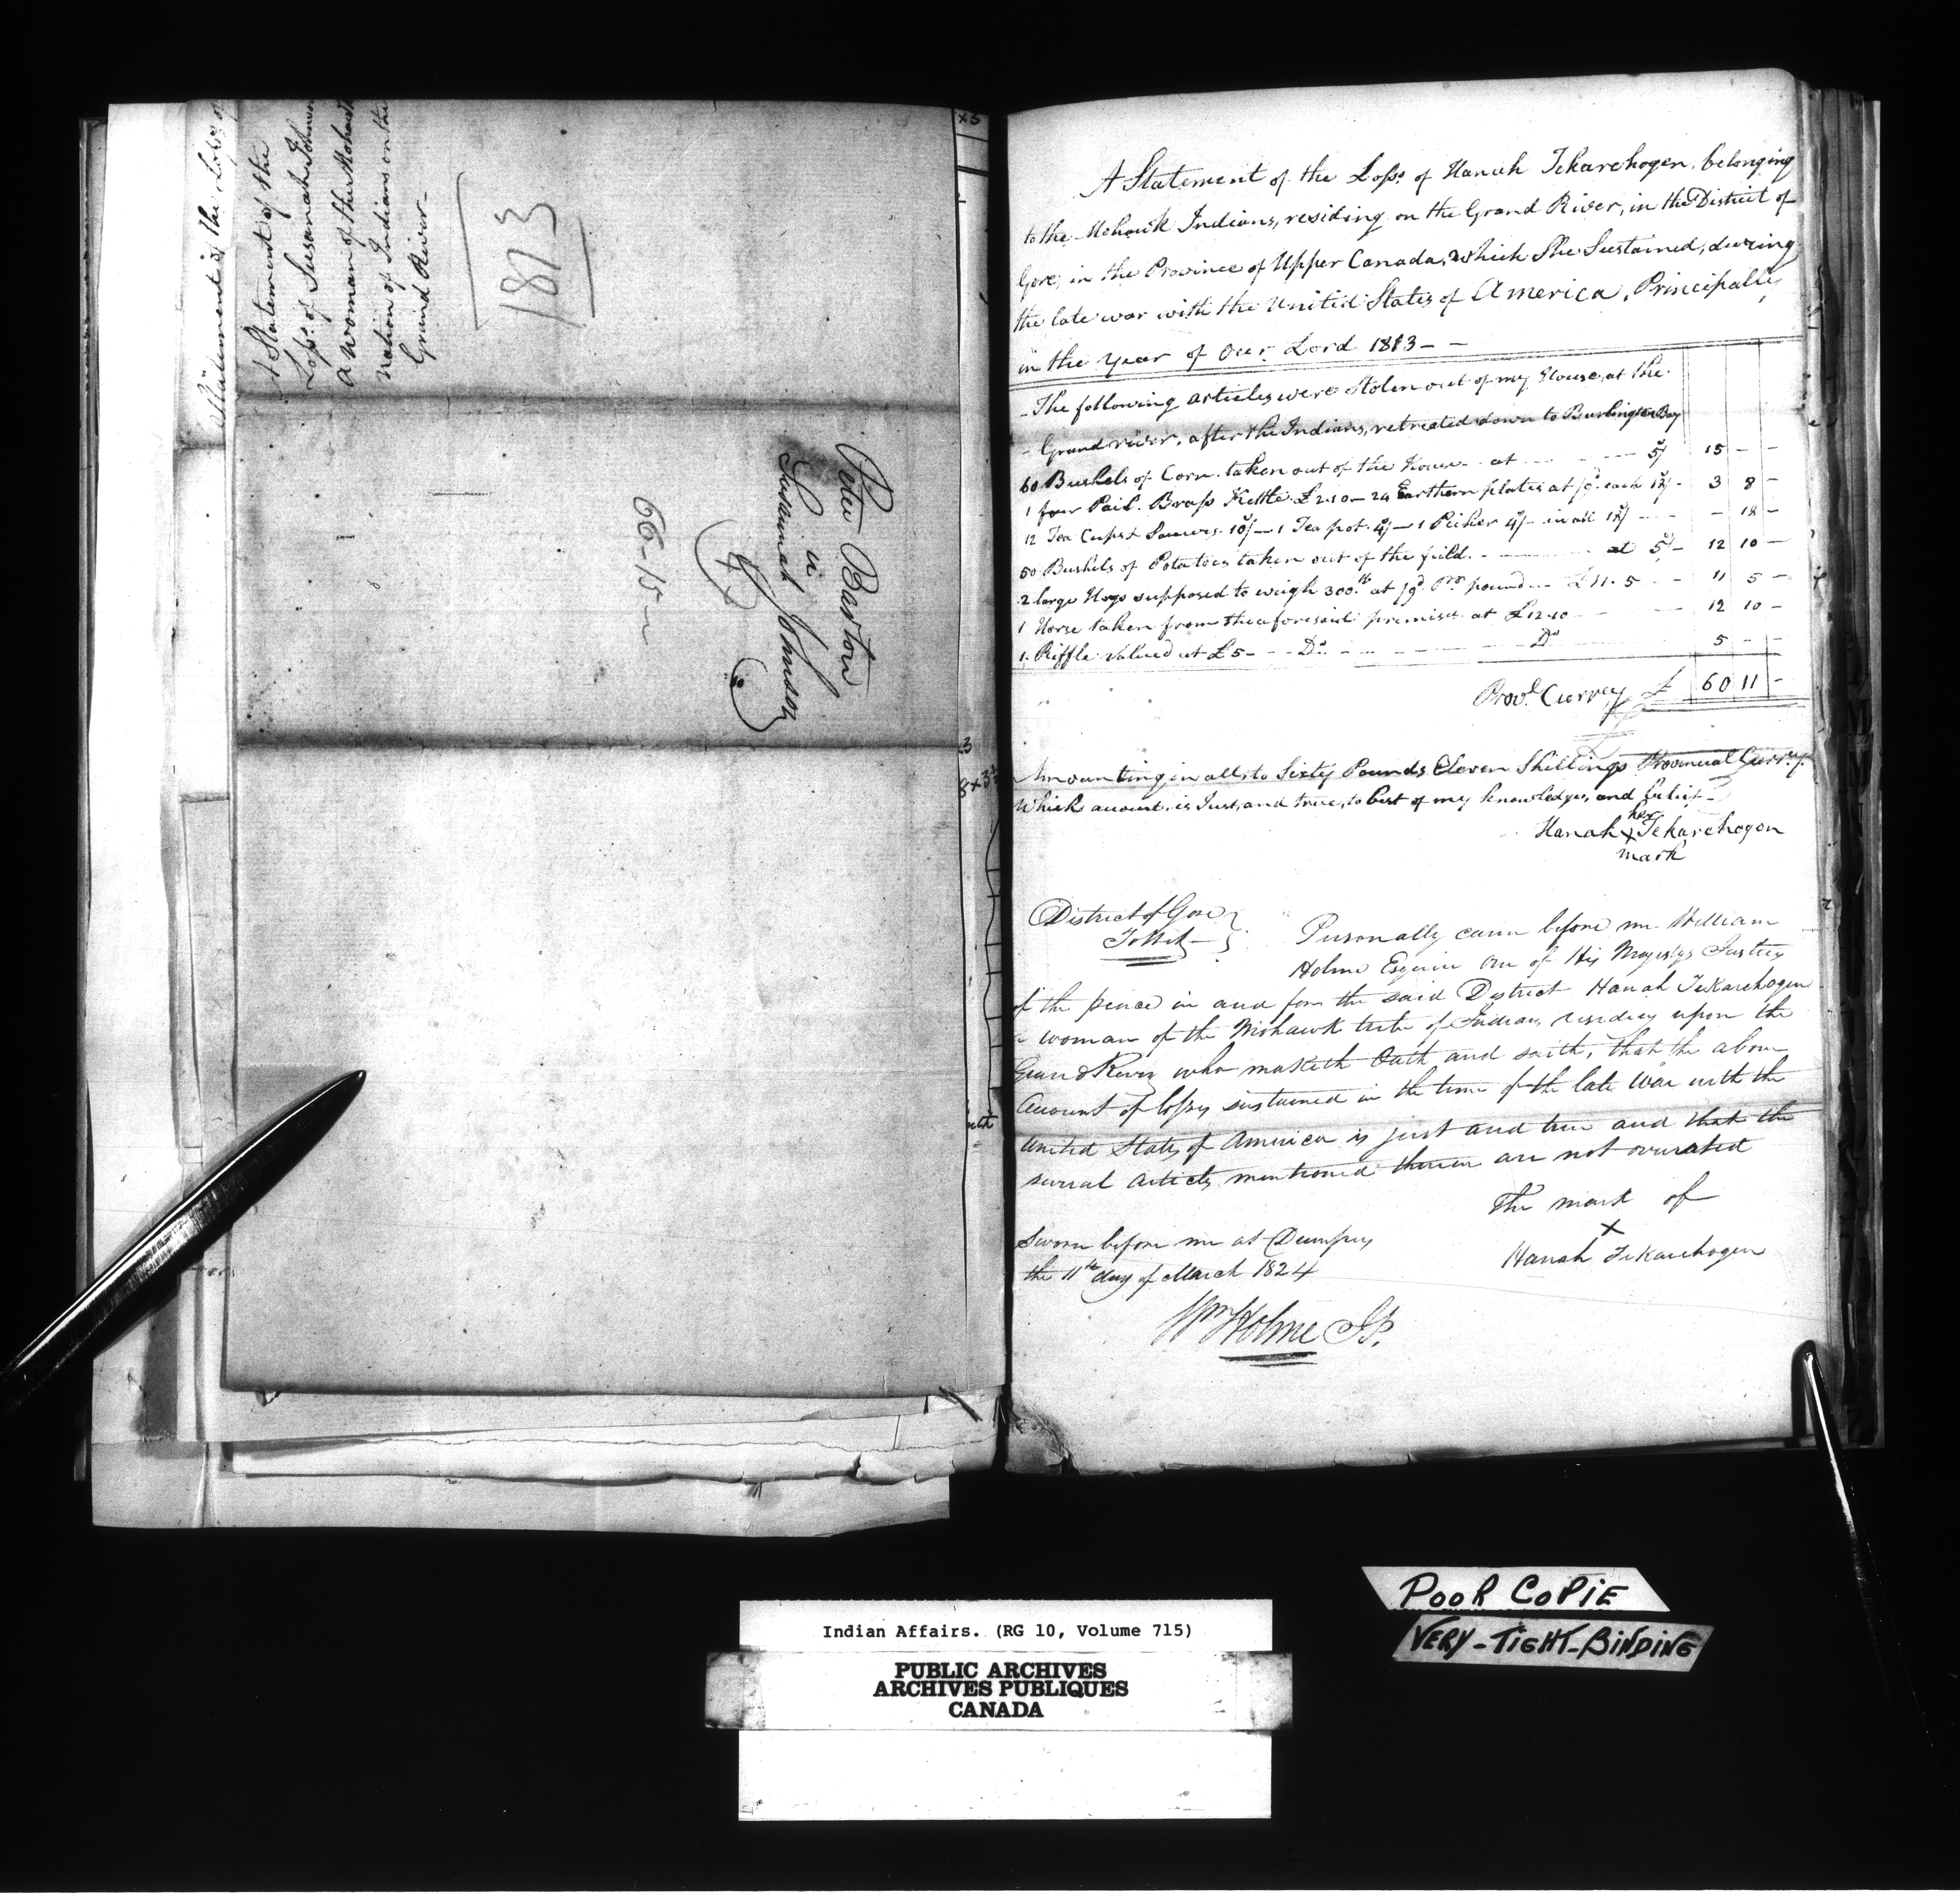 A Statement of the
Loss. of Susannah Johnson
a woman of the Mohawk
Nation of Indians on the
Grand River—
1813
Statement of the Loss of
Peter Barton
a
Susannah Johnson
66-15-
A Statement of the Loss. of Hanah Tekarehogen. belonging
to the Mohawk Indians, residing on the Grand River, in the District of
Gore, in the Province of Upper Canada, which She Sustained, during
the late war with the United States of America, Principally
in the Year of Our Lord 1813 – –
- The following articles were Stolen out of my House, at the
- Grand river, after the Indians, retreated down to Burlington Bay
60 Bushels of Corn. taken out of the House – at – – – 5/ 15 – –
1 four Pail. Brass Kettle £2.10 – 24 Earthern plates at /9d. each 18/- 3 8 –
12 Tea Cups & Saucers. 10/ – 1 Tea pot. 4/ – 1 Picher 4/- in all 18/ – – 18 –
50 Bushels of Potatoes taken out of the field. – – – at 5/- 12 10 –
2 large Hogs supposed to weigh 300lb at /9d Pr. pound – £11. 5 – – 11 5 –
1 Horse taken from the aforesaid premises at £12.10 – – – 12 10 –
1 Riffle valued at £5 – – Do. – – – Do 5 – –
Provl. Currey £ 60 11 –
Amounting in all, to Sixty Pounds Eleven Shillings Provincial Currey.
Which account, is Just, and true, to best of my knowledge, and belief –
her
Hanah X Tekarehogen
mark
District of Gore }
To Wit – }
Personally came before me William
Holme Esquire One of His Majestys Justices
of the peace in and for the said District Hanah Tekarehogen
a woman of the Mohawk tribe of Indians residing upon the
Grand River who maketh Oath and saith, that the above
Account of losses sustained in the time of the late War with the
United States of America is just and true and that the
several Articles mentioned therein are not overrated
The mark of
X
Hanah Tekarehogen
Sworn before me at Dumfries
the 11th day of March 1824
Wm Holme JP.
POOR COPIE
VERY-TIGHT-BINDING
Indian Affairs. (RG 10, Volume 715)
PUBLIC ARCHIVES
ARCHIVES PUBLIQUES
CANADA